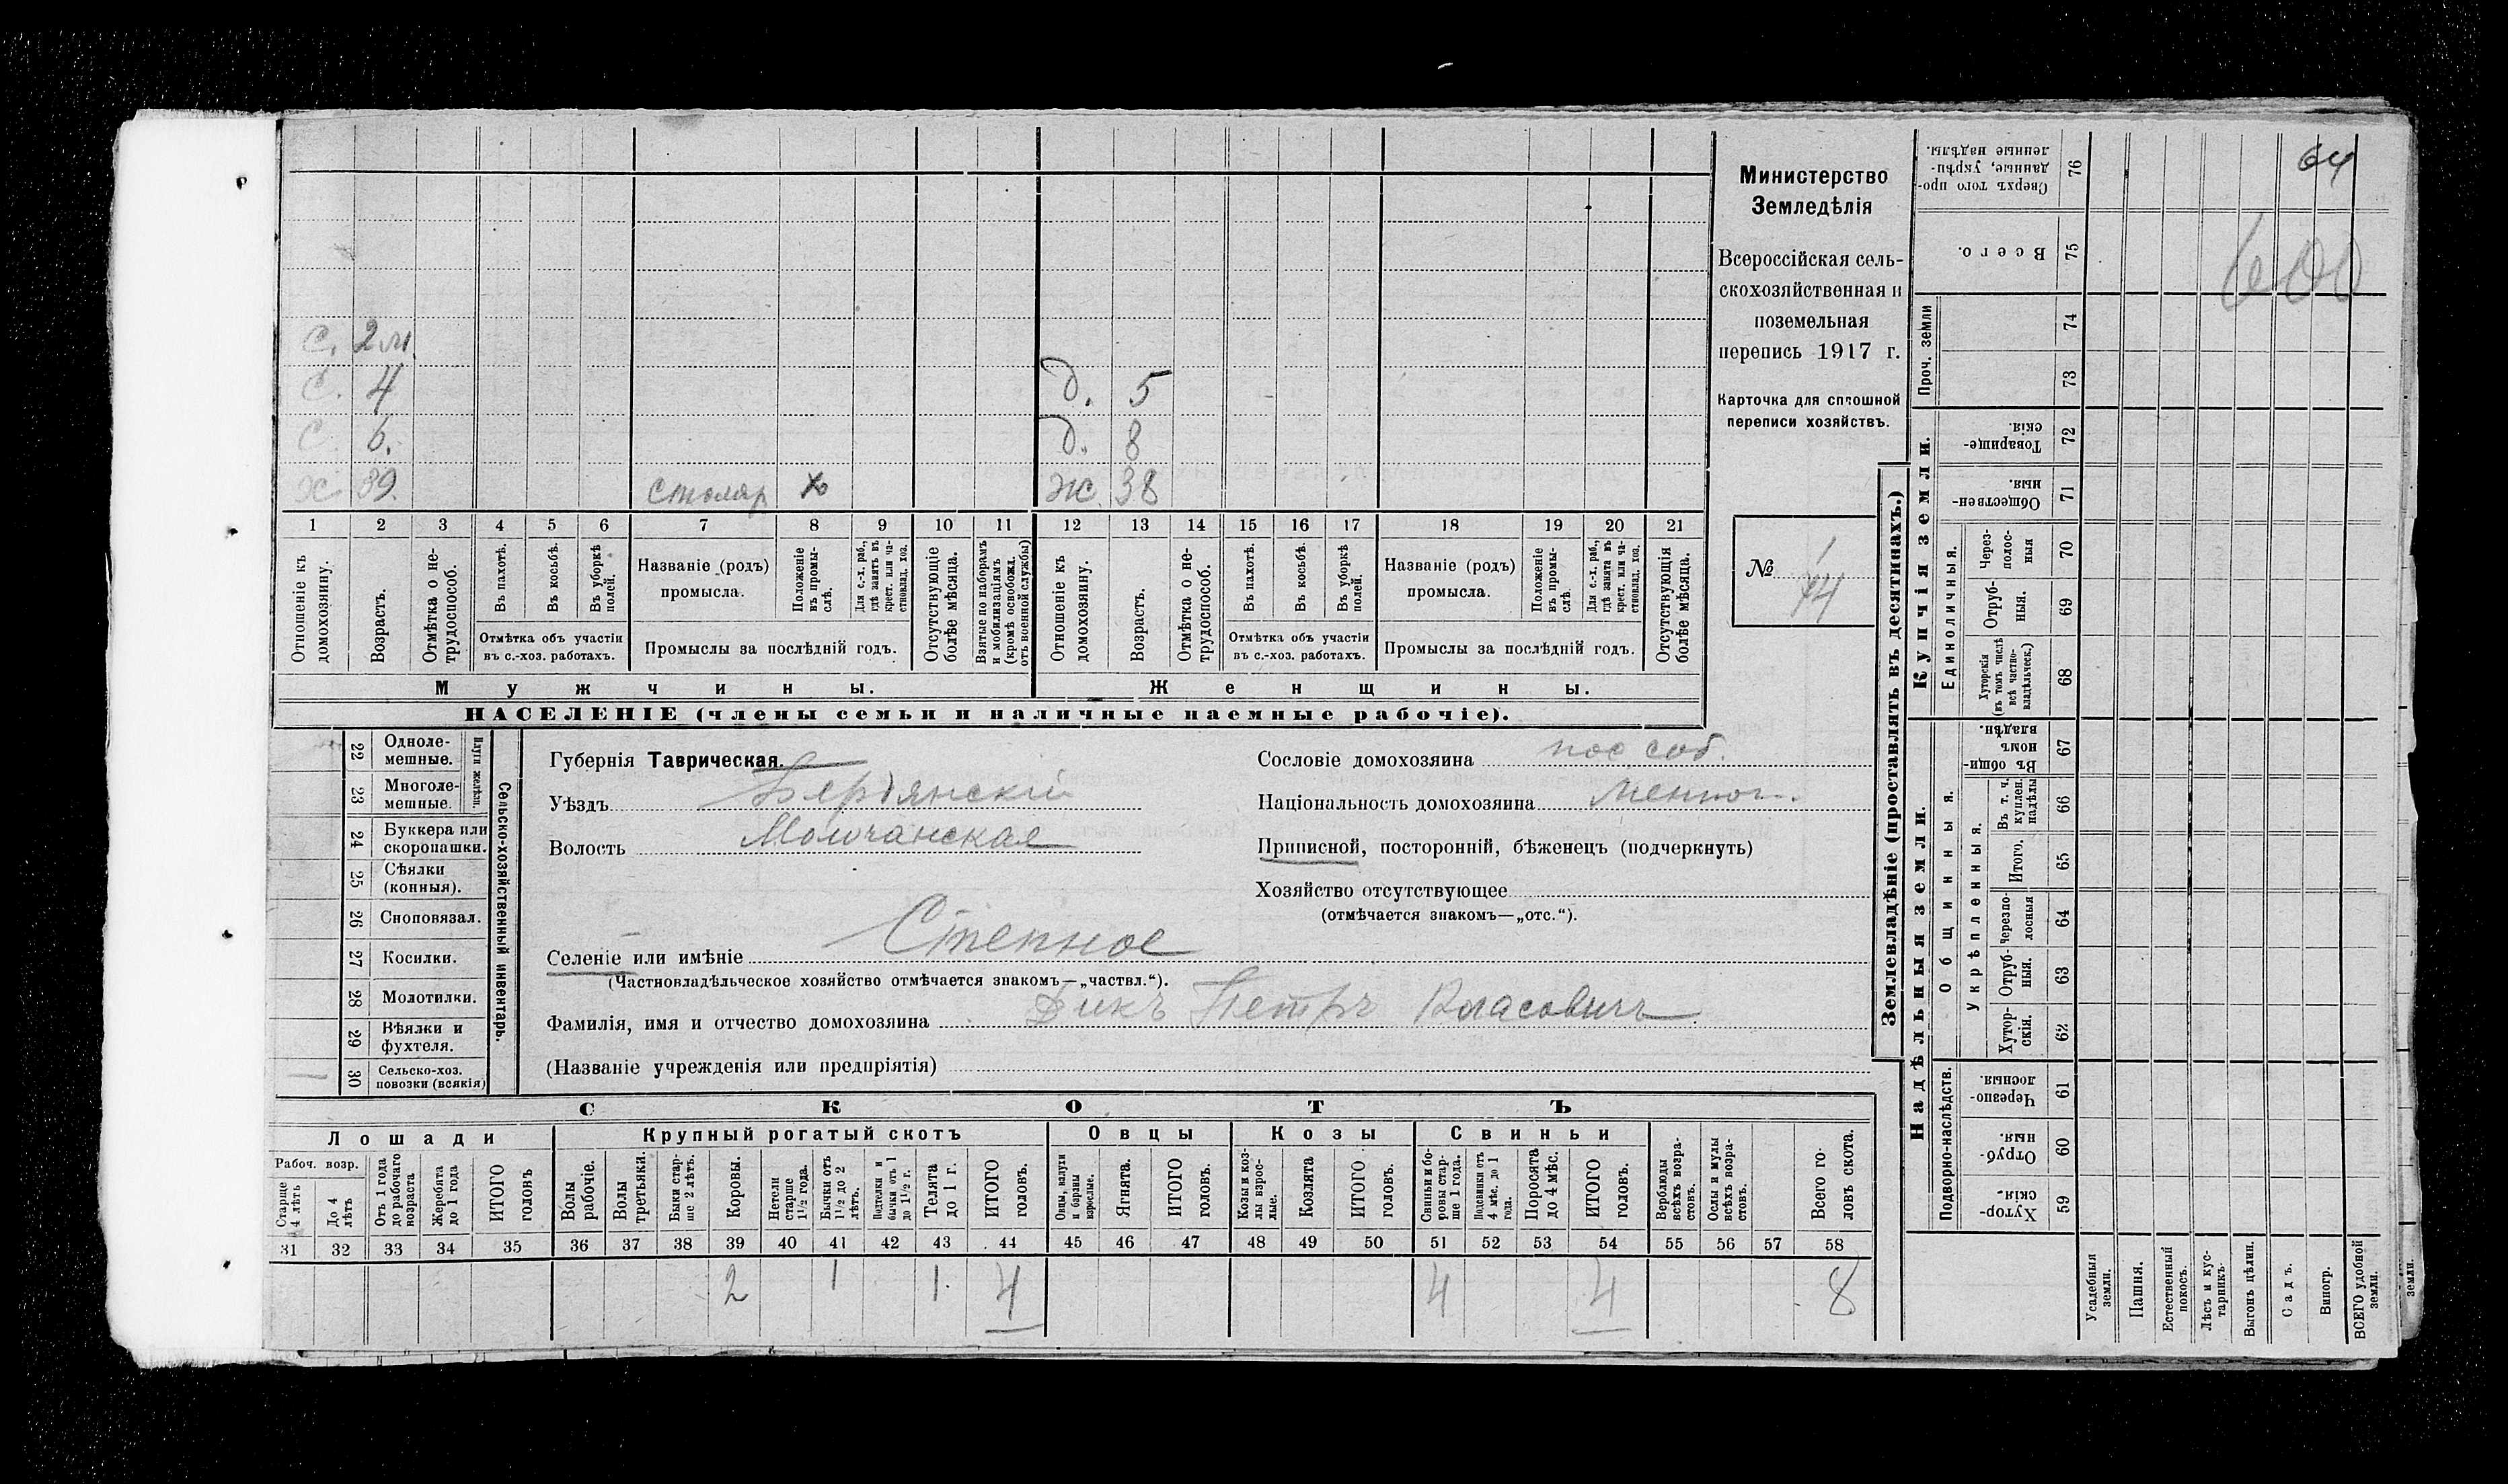 64
600
с. 2 м.
с. 4 д. 5
с. 6. д. 8
х. 39. столяр х ж. 38
1 2 3 4 5 6 7 8 9 10 11 12 13 14 15 16 17 18 19 20 21
Отношеніе къ домохозяину.
Возрастъ.
Отмѣтка о нетрудоспособ.
Въ пахотѣ.
Въ косьбѣ.
Въ уборкѣ полей.
Отмѣтка объ участіи
въ с.-хоз. работахъ.
Названіе (родъ)
промысла.
Положеніе въ промыслѣ.
Для с.-х. раб., гдѣ занятъ въ крест. или частновлад. хоз.
Промыслы за послѣдній годъ.
Отсутствующіе болѣе мѣсяца.
Взятые по наборамъ и мобилизаціямъ (кромѣ освобожд. отъ военной службы)
Отношеніе къ домохозяину.
Возрастъ.
Отмѣтка о нетрудоспособ.
Въ пахотѣ.
Въ косьбѣ.
Въ уборкѣ полей.
Отмѣтка объ участіи
въ с.-хоз. работахъ.
Названіе (родъ)
промысла.
Положеніе въ промыслѣ.
Для с.-х. раб., гдѣ занята въ крест. или частновлад. хоз.
Промыслы за послѣдній годъ.
Отсутствующія болѣе мѣсяца.
Мужчины. Женщины.
НАСЕЛЕНІЕ (члены семьи и наличные наемные рабочіе).
Министерство
Земледѣлія
Всероссійская сель-
скохозяйственная и
поземельная
перепись 1917 г.
Карточка для сплошной
переписи хозяйствъ.
№
22 Одноле-
мешные.
23 Многоле-
мешные.
Плуги желѣзн.
24 Буккера или
скоропашки.
25 Сѣялки
(конныя).
26 Сноповязал.
27 Косилки.
28 Молотилки.
29 Вѣялки и
фухтеля.
30 Сельско-хоз.
повозки (всякія)
Сельско-хозяйственный инвентарь.
Губернія Таврическая.
Уѣздъ Бердянскій
Волость Молочанская
Сословіе домохозяина пос. соб.
Національность домохозяина Меннон.
Приписной, посторонній, бѣженецъ (подчеркнуть)
Хозяйство отсутствующее
(отмѣчается знакомъ—„отс.“).
Селеніе или имѣніе Степное
(Частновладѣльческое хозяйство отмѣчается знакомъ—„частвл.“).
Фамилія, имя и отчество домохозяина Дикъ Петръ Власовичъ
(Названіе учрежденія или предпріятія)
СКОТЪ
Лошади Крупный рогатый скотъ Овцы Козы Свиньи
Рабоч. возр.
Старше 4 лѣтъ
До 4 лѣтъ
Отъ 1 года до рабочаго возраста
Жеребята до 1 года
ИТОГО головъ
Волы рабочіе.
Волы третьяки.
Быки старше 2 лѣтъ.
Коровы.
Нетели старше 1½ года.
Бычки отъ 1½ до 2 лѣтъ.
Подтелки и бычки отъ 1 до 1½ г.
Телята до 1 г.
ИТОГО головъ.
Овцы, валухи и бараны взрослые.
Ягнята.
ИТОГО головъ.
Козы и козлы взрослые.
Козлята
ИТОГО головъ.
Свиньи и боровы старше 1 года.
Подсвинки отъ 4 мѣс. до 1 года.
Поросята до 4 мѣс.
ИТОГО головъ.
Верблюды всѣхъ возрастовъ.
Ослы и мулы всѣхъ возрастовъ.
Всего головъ скота.
31 32 33 34 35 36 37 38 39 40 41 42 43 44 45 46 47 48 49 50 51 52 53 54 55 56 57 58
2 1 1. 4 4 4 8
Землевладѣніе (проставлять въ десятинахъ.)
Надѣльныя земли. Купчія земли. Проч. земли
Подворно-наслѣдств.
Общинныя.
Укрѣпленныя.
Единоличныя.
59 Хутор-
скія.
60 Отруб-
ныя.
61 Черезпо-
лосныя
62 Хутор-
скія.
63 Отруб-
ныя.
64 Черезпо-
лосныя
65 Итого.
66 Въ т. ч. куплен. надѣлы
67 Въ общин-
номъ
владѣн.
68 Хуторскія (въ томъ числѣ всѣ частно-владѣльческ.)
69 Отруб-
ныя.
70 Через-
полос-
ныя
71 Обществен-
ныя.
72 Товарище-
скія.
73
74
75 Всего.
76 Сверхъ того про-
данные, укрѣп-
ленные надѣлы.
Усадебныя земли.
Пашня.
Естественный покосъ.
Лѣсъ и кустарникъ.
Выгонъ цѣлин.
Садъ.
Виногр.
ВСЕГО удобной земли.
земли.